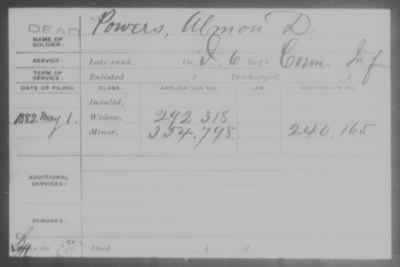 DEAD
NAME OF SOLDIER: Powers, Almon D.
SERVICE: Late rank, Co. I. 6 Reg't Conn. Inf
TERM OF SERVICE: Enlisted , 1 Discharged , 1
DATE OF FILING. CLASS. APPLICATION NO. LAW. CERTIFICATE NO.
Invalid,
1882 May 1. Widow, 292 318
Minor, 354.798. 240.165.
ADDITIONAL SERVICES:
REMARKS:
Died , 1 , at